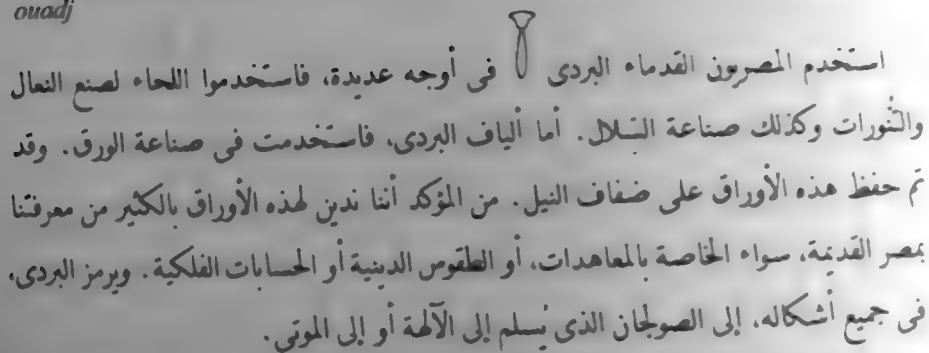 ouadj
استخدم المصريون القدماء البردى فى أوجه عديدة، فاستخدموا اللحاء لصنع النعال
والتُنورات وكذلك صناعة السلال. أما ألياف البردى، فاستخدمت فى صناعة الورق. وقد
تم حفظ هذه الأوراق على ضفاف النيل. من المؤكد أننا ندين لهذه الأوراق بالكثير من معرفتنا
بمصر القديمة، سواء الخاصة بالمعاهدات، أو الطقوس الدينية أو الحسابات الفلكية. ويرمز البردى،
فى جميع أشكاله، إلى الصولجان الذى يُسلم إلى الآلهة أو إلى الموتى.